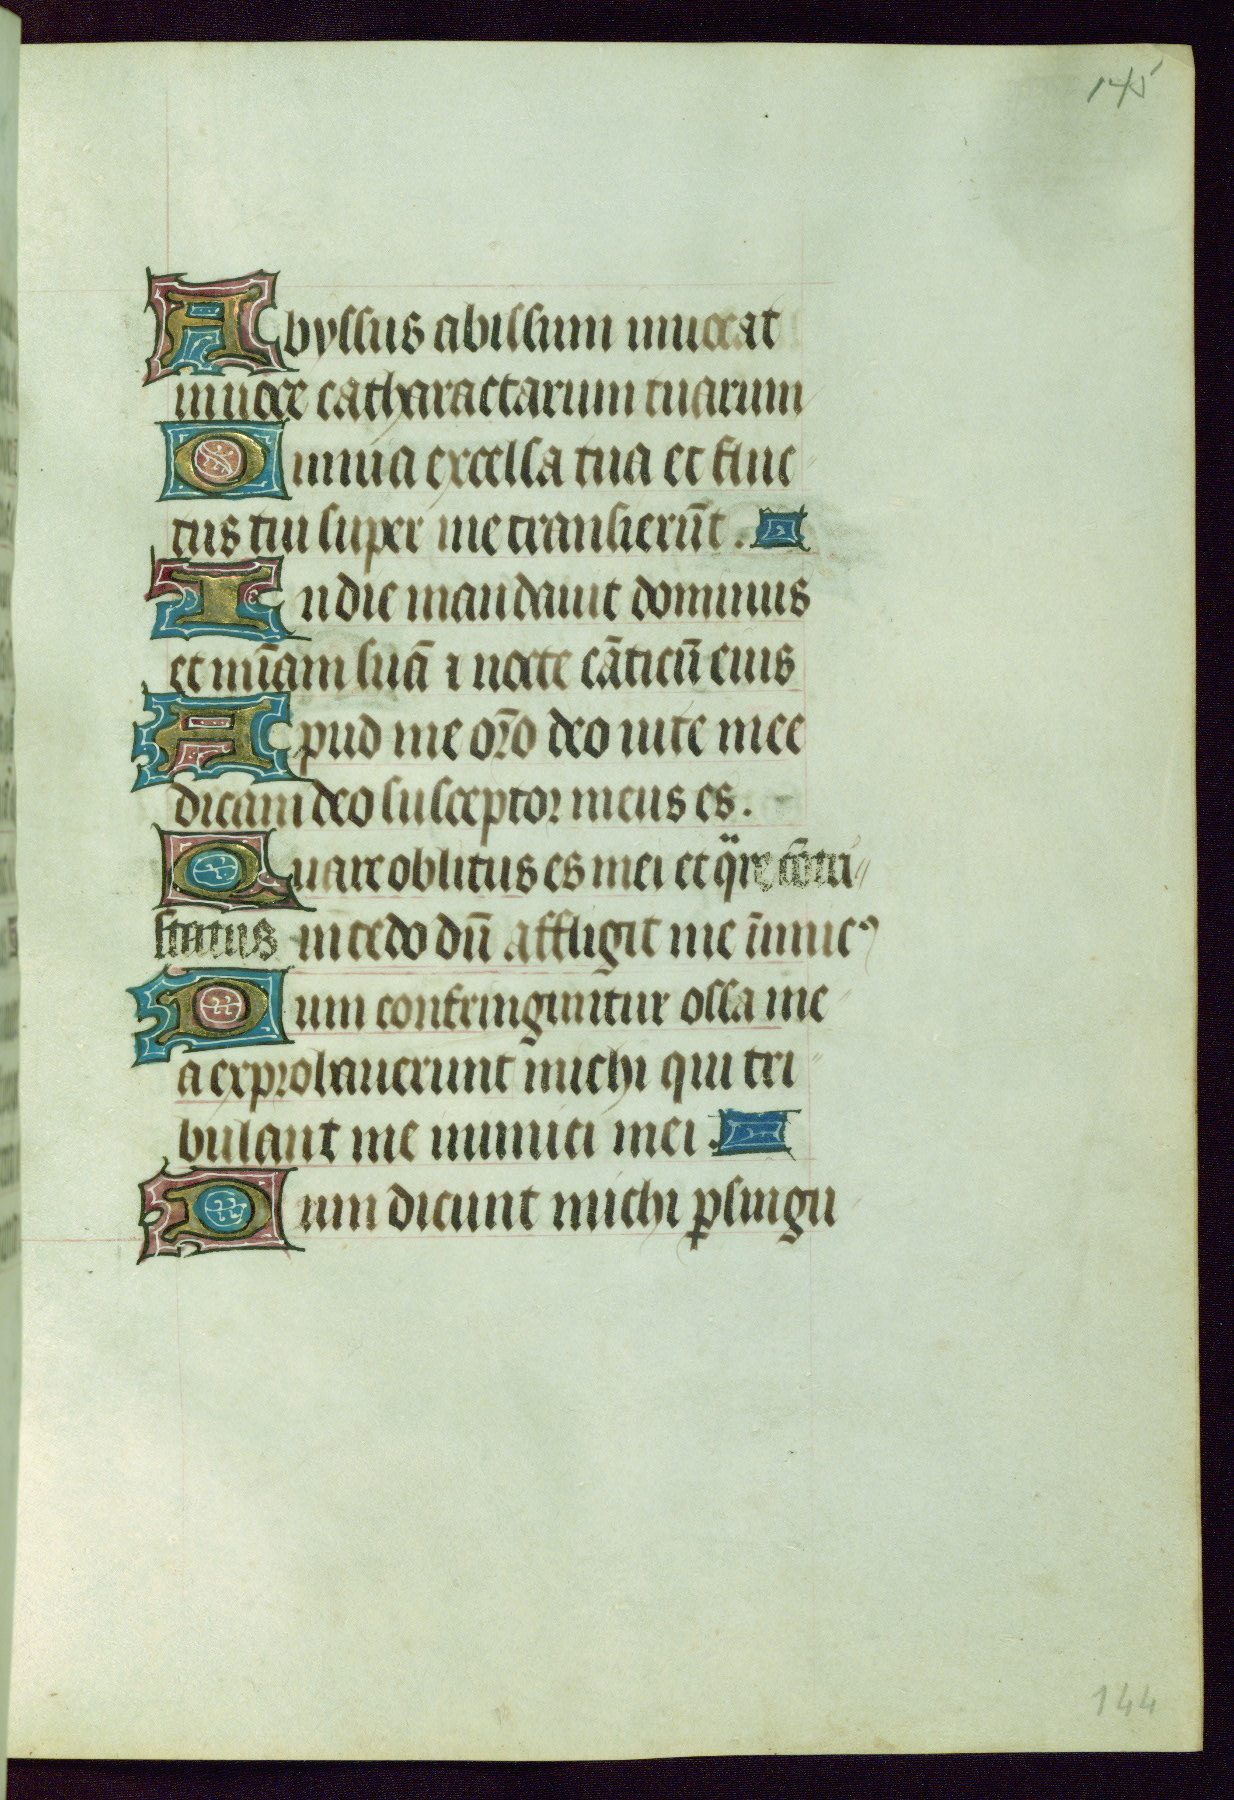 145
Abyssus abissum inuocat
inuoce catharactarum tuarum
Omnia excelsa tua et fluc
tus tui super me transierūt.
In die mandauit dominus
et mīam suā ⁊ nocte cāticū eius
Apud me oṝo deo uite mee
dicam deo susceptor meus es.
Quare oblitus es mei et qͣre cōtri
status incedo dū affligit me īimicꝰ
Dum confringuntur ossa me
a exprobauerunt michi qui tri
bulant me inimici mei.
Dum dicunt michi ꝑ singu
144